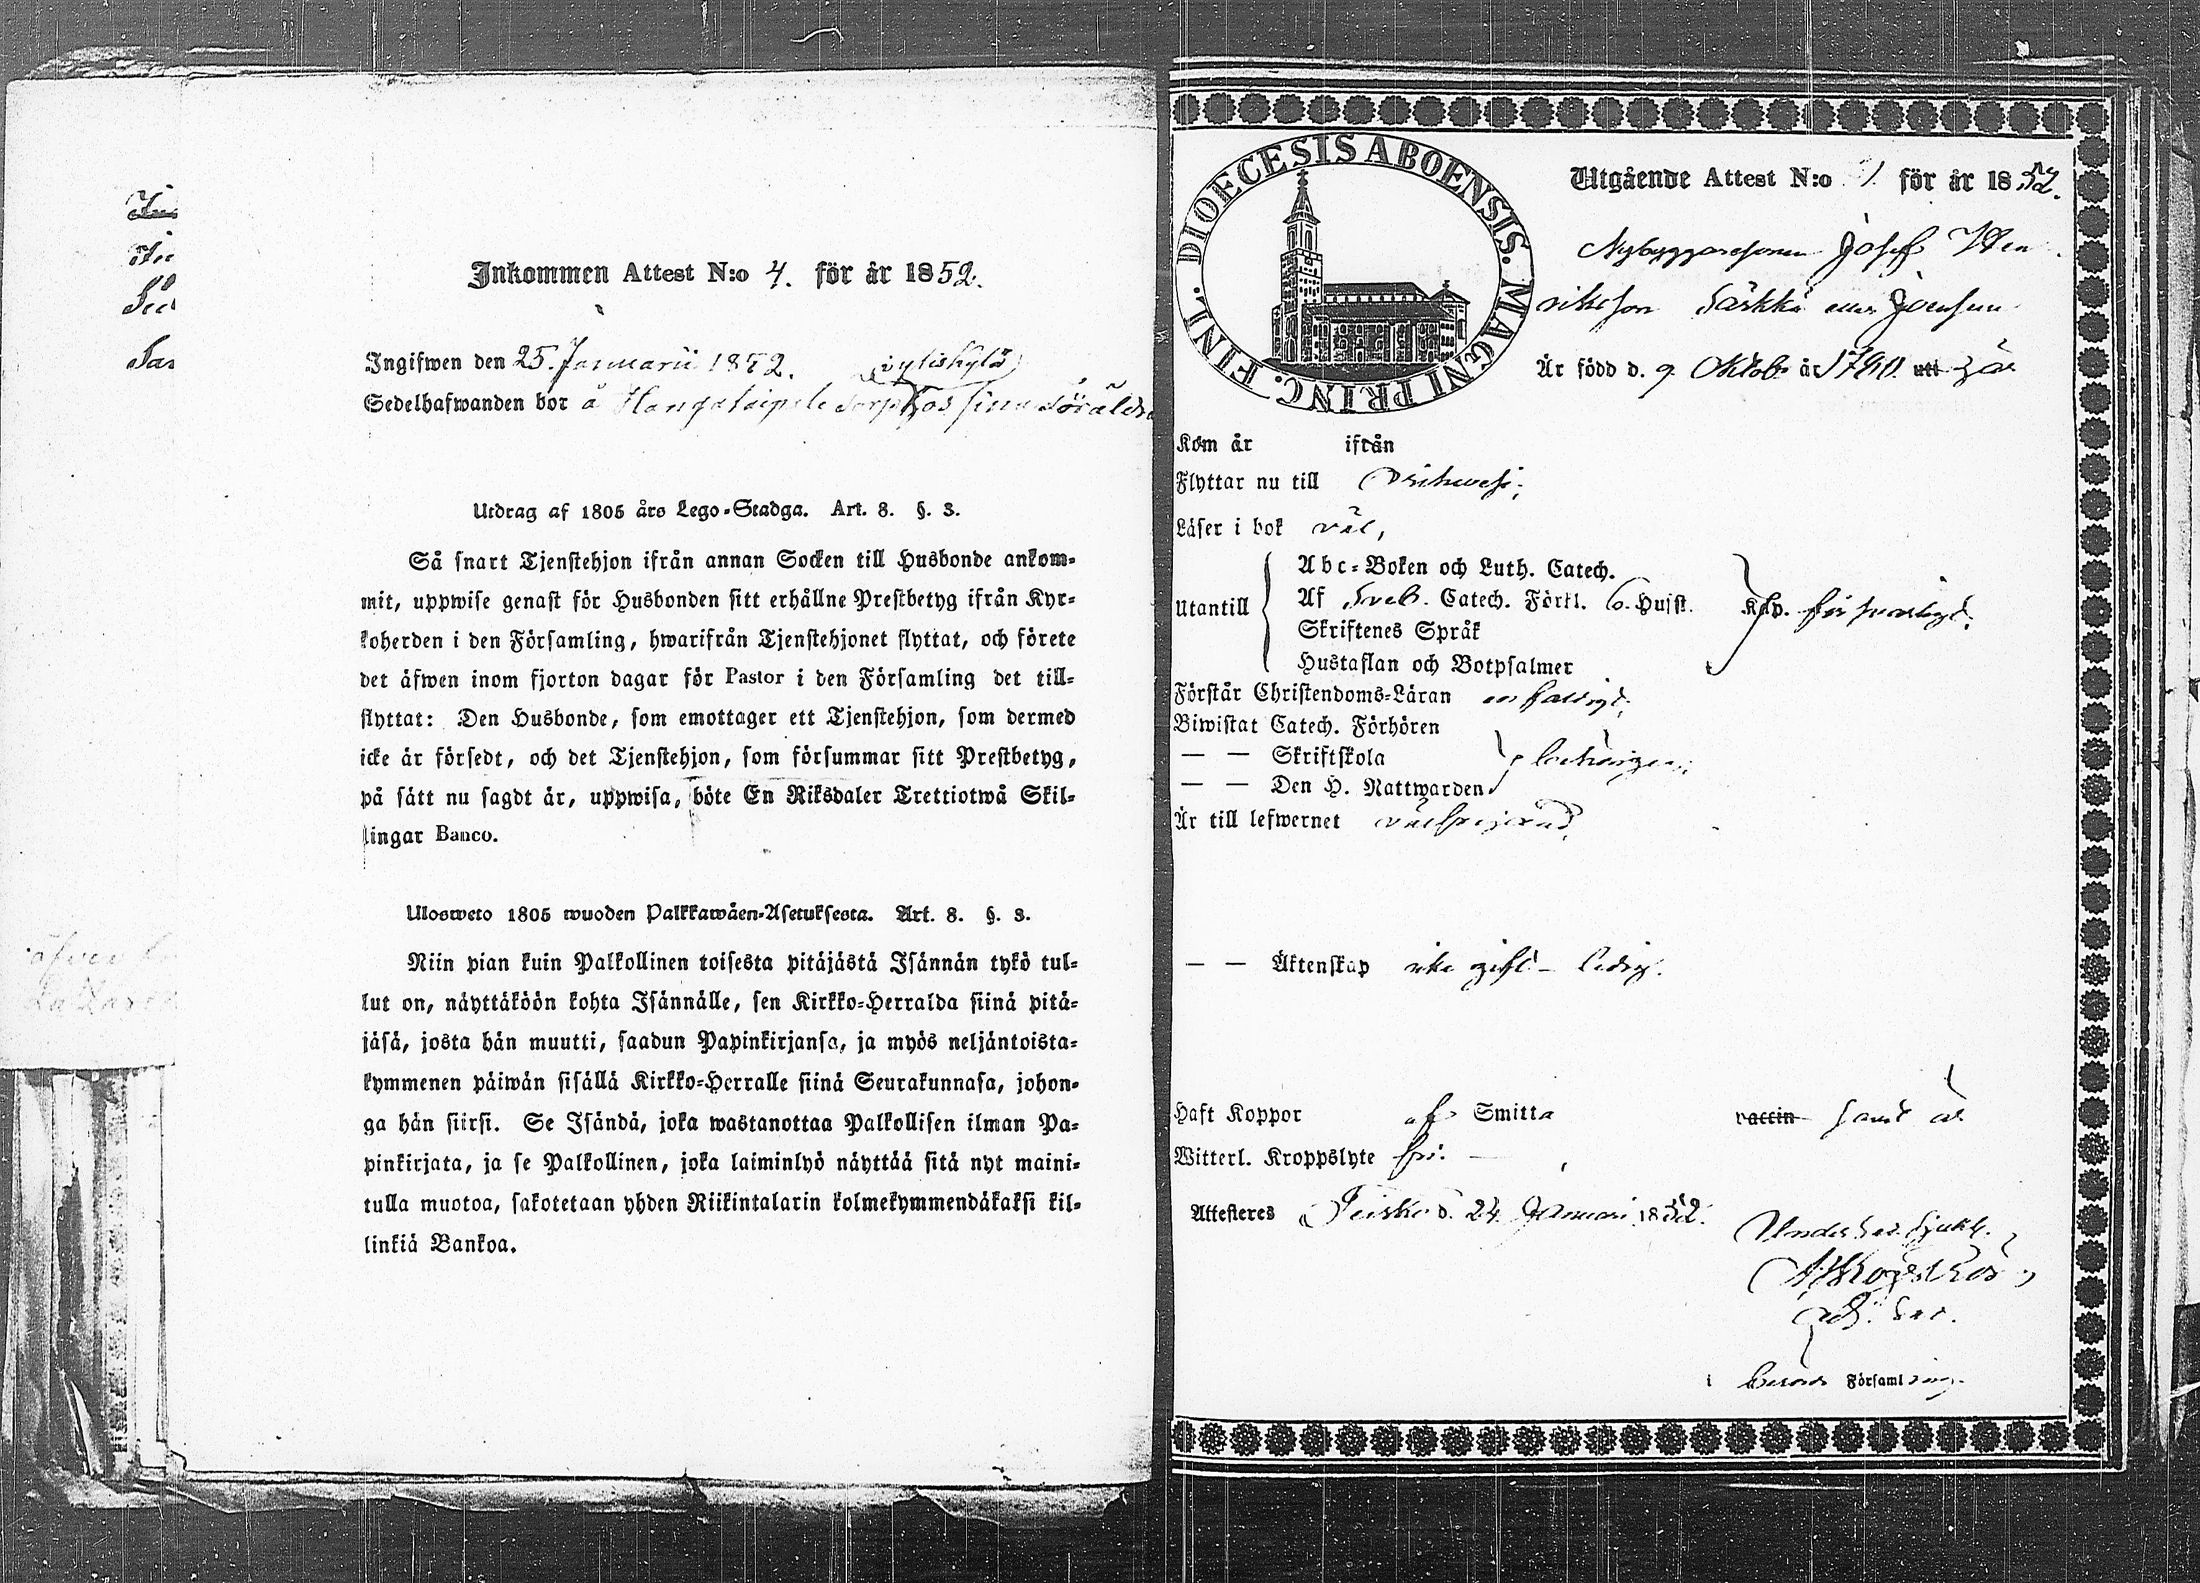 Inkommen Attest N:o 4. för år 1852.
Ingifwen den 25. Januarii 1852.
Sedelhafwanden bor å torp hos sina föräldr
Utdrag af 1805 års Lego-Stadga. Art. 8. §. 3.
Så snart Tjenstehjon ifrån annan Socken till Husbonde ankom-
mit, uppwise genast för Husbonden sitt erhållne Prestbetyg ifrån Kyr-
koherden i den Församling, hwarifrån Tjenstehjonet flyttat, och förete
det äfwen inom fjorton dagar för Pastor i den Församling det till-
flyttat: Den Husbonde, som emottager ett Tjenstehjon, som dermed
icke är försedt, och det Tjenstehjon, som försummar sitt Prestbetyg,
på sätt nu sagdt är, uppwisa, böte En Riksdaler Trettiotwå Skil-
lingar Banco.
Ulosweto 1805 wuoden Palkkawäen-Asetuksesta. Art. 8. §. 3.
Niin pian kuin Palkollinen toisesta pitäjästä Isännän tykö tul-
lut on, näyttäköön kohta Isännälle, sen Kirkko-Herralda siinä pitä-
jäsä, josta hän muutti, saadun Papinkirjansa, ja myös neljäntoista-
kymmenen päiwän sisällä Kirkko-Herralle siinä Seurakunnasa, johon-
ga hän siirsi. Se Isändä, joka wastanottaa Palkollisen ilman Pa-
pinkirjata, ja se Palkollinen, joka laiminlyö näyttää sitä nyt maini-
tulla muotoa, sakotetaan yhden Riikintalarin kolmekymmendäkaksi kil-
linkiä Bankoa.
DIOECESIS ABOENSIS. MAGNI PRINC. FINL.
Utgående Attest N:o för år 1852.
Nybyggaresonen Josef Hen
riksson Särkkä
Är född d. 9 Oktob. år 1790. utt
Kom år ifrån
Flyttar nu till Orihwesi;
Läser i bok väl,
Utantill
Abc-Boken och Luth. Catech.
Af Sveb. Catech. Förkl. o. Hufst. Ksp. försvarligt.
Skriftenes Språk
Hustaflan och Botpsalmer
Förstår Christendoms-Läran enfaldigt;
Biwistat Catech. Förhören
— — Skriftskola behörigen;
— — Den H. Nattwarden
Är till lefwernet välfrejdad.
— — Äktenskap icke gift - ledig.
Haft Koppor af Smitta vaccin samt är
Witterl. Kroppslyte fri.
Attesteres i Teisko d. 24 Januari 1852.
i berörde Församling.